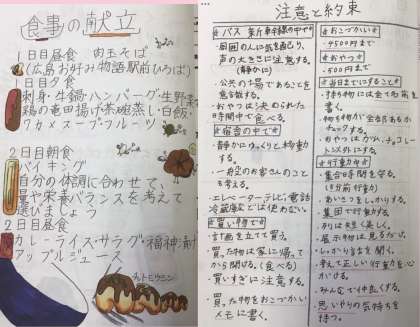 食事の献立
1日目昼食 肉玉そば
(広島お好み物語駅前ひろば)
1日目夕食
刺身・牛鍋・ハンバーグ・生野菜
鶏の竜田揚げ・茶碗蒸し・白飯・
ワカメスープ・フルーツ
2日目朝食
バイキング
自分の体調に合わせて、
量や栄養バランスを考えて
選びましょう
2日目昼食
カレーライス・サラダ・福神漬
アップルジュース
注意と約束
☆バス・新幹線の中で☆
・周囲の人に気を配り、
声の大きさに注意する。
(静かに)
・公共の場であることを
意識する。
・おやつは決められた
時間中で食べる。
☆宿舎の中で☆
・静かにゆっくりと移動
する。
・一般のお客さんのこと
も考える。
・エレベーター、テレビ、電話
冷蔵庫などは使わない。
☆買い物で☆
・計画を立てて買う。
・買った物は家に帰って
から開ける。(食べる)
・買いすぎに注意する。
・買った物をおこづかい
メモに書く。
☆おこづかい☆
・4500円まで
☆おやつ☆
・500円まで
・持ち物には全て名前を
書く。
・物を何か全部あるか
チェックする。
・おやつはガム、チョコレー
ト以外にする。
☆行動中☆
・集合時間を守る。
(5分前行動)
・あいさつをしっかりする。
・集団で行動する。
・列は短く美しく。
・展示物は見るだけ。
・しっかり話を聞く。
・考えて正しい行動を心
がける。
・みんなで仲良くする。
・思いやりの気持ちを
持つ。